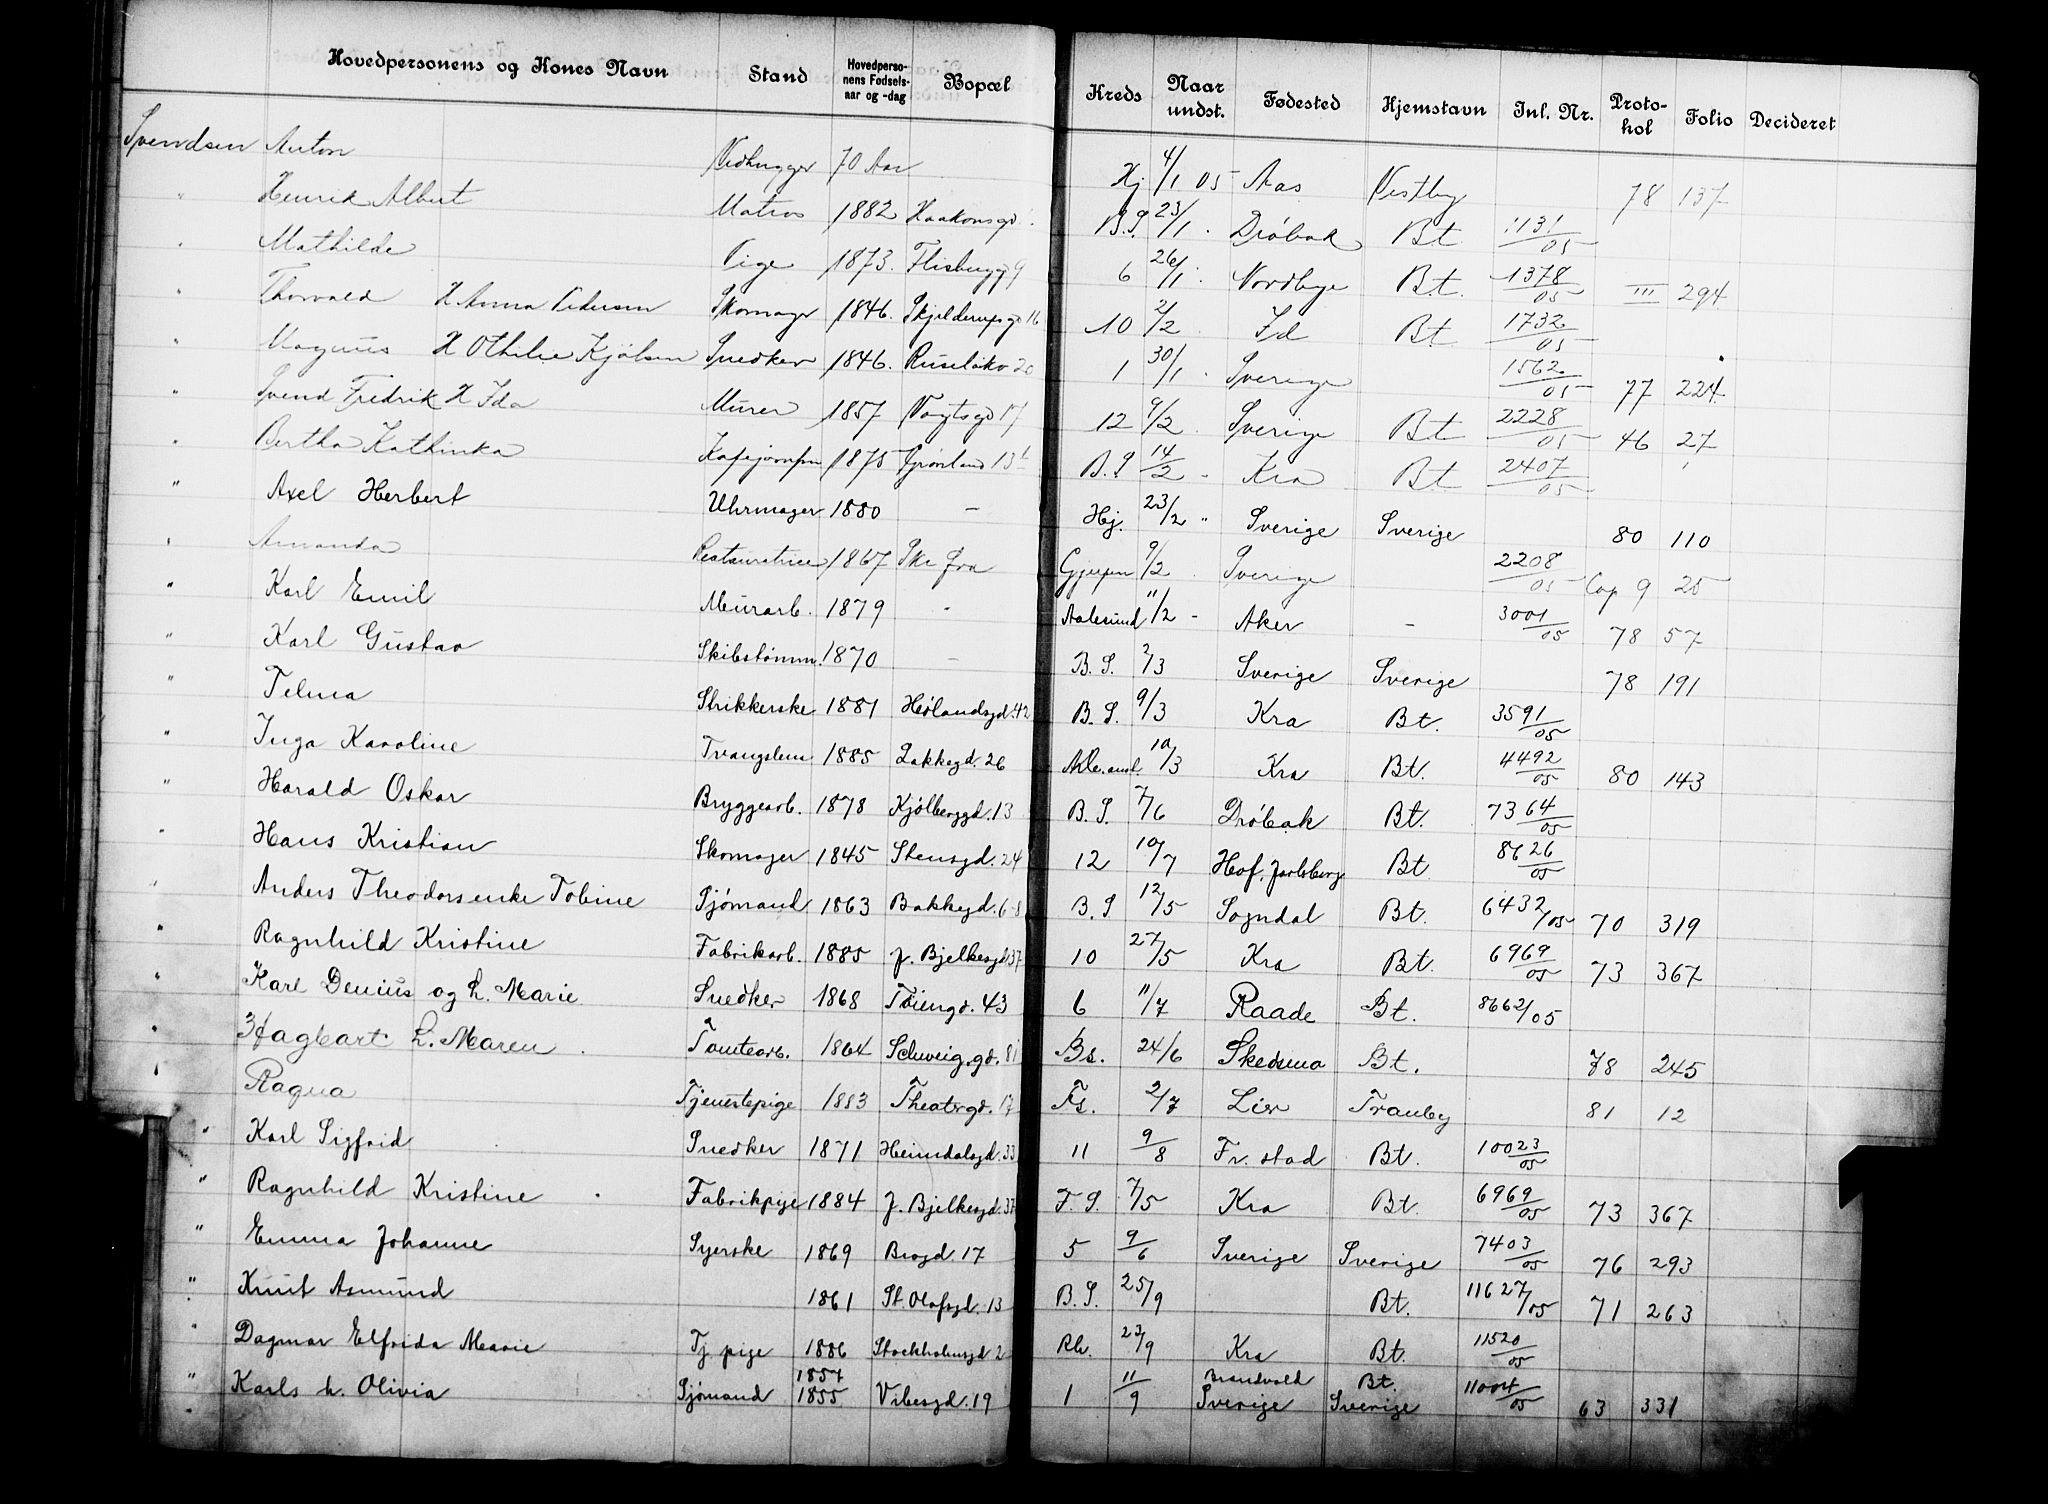 Hovedpersonens og Kones Navn Stand Hovedperso-nens Fødsels-aar og -dag Bopæl Kreds Naar undst. Fødested Hjemstavn Inl. Nr. Proto-kol Folio Decideret
Svendsen Anton Vedhugger 70 Aar Hj 4/1 05 Aas Vestby 78 137
" Henrik Albert Matros 1882 Haakonsgd B.S. 23/1 Drøbak Bt 1131/05
" Mathilde Pige 1873 9 6 26/1 Nordbye Bt. 1378/05 III 294
" Thorvald H Anna Pedersen Skomager 1846 Skjelderupsgd 16 10 2/2 Id Bt 1732/05
" Magnus H Othilie Kjølsen Snedker 1846 Ruseløkv 20 1 30/1 Sverige 1562/05 77 224
" Svend Fredrik H Ida Murer 1857 Vogtsgd 17 12 9/2 Sverige Bt 2228/05 46 27
" Bertha Kathinka 1875 Grønland 13 B.S 14/2 Kra Bt 2407/05
" Axel Herbert Uhrmager 1880 - Hj. 23/2 " Sverige Sverige 80 110
" Amanda 1867 Ske fra 9/2 Sverige 2208/05 Cop 9 25
" Karl Emil Murarb. 1879 - Aalesund 11/2 - Aker - 3001/05 78 57
" Karl Gustav Skibstømm. 1870 - B.S. 2/3 Sverige Sverige 78 191
" Telma Strikkerske 1881 Hølandsgd. 42 B.S. 9/3 Kra Bt. 3591/05
" Inga Karoline Tvangslem 1885 Lakkegd. 26 10/3 Kra Bt. 4492/05 80 143
" Harald Oskar Bryggearb. 1878 Kjølberggd. 13 B.S. 7/6 Drøbak Bt. 7364/05
" Hans Kristian Skomager 1845 Stensgd. 24 12 10/7 Hof, Jarlsberg Bt 8626/05
" Anders Theodors enke Tobine Sjømand 1863 Bakkegd. 6-8 B.S 12/5 Sogndal Bt. 6432/05 70 319
" Ragnhild Kristine Fabrikarb. 1885 J. Bjelkesgd 37 10 27/5 Kra Bt. 6969/05 73 367
" Karl Denius og h. Marie Snedker 1868 Tøiengd. 43 6 11/7 Raade Bt. 8662/05
" Hagbart h. Maren Tomtearb. 1864 Schweig.gd. 81 Bs. 24/6 Skedsmo Bt. 78 245
" Ragna Tjenestepige 1883 Theatergd. 17 Fs. 2/7 Lier Tranby 81 12
" Karl Sigfrid Snedker 1871 Heimdalsgd. 33 11 9/8 Fr.stad Bt. 10023/05
" Ragnhild Kristine Fabrikpige 1884 J. Bjelkesgd. 37 F.S. 7/5 Kra Bt. 6969/05 73 367
" Emma Johanne Syerske 1869 Brogd. 17 5 9/6 Sverige Sverige 7403/05 76 293
" Knut Asmund 1861 St. Olafsgd. 13 B.S. 25/9 Bt. 11627/05 71 263
" Dagmar Elfrida Marie Tj pige 1886 Stockholmsgd 2 Rh. 23/9 Kra Bt. 11520/05
" Karls h. Olivia Sjømand 1854 1855 Vibesgd. 19 1 11/9 Brandvold Sverige Bt. Sverige 11004/05 63 331